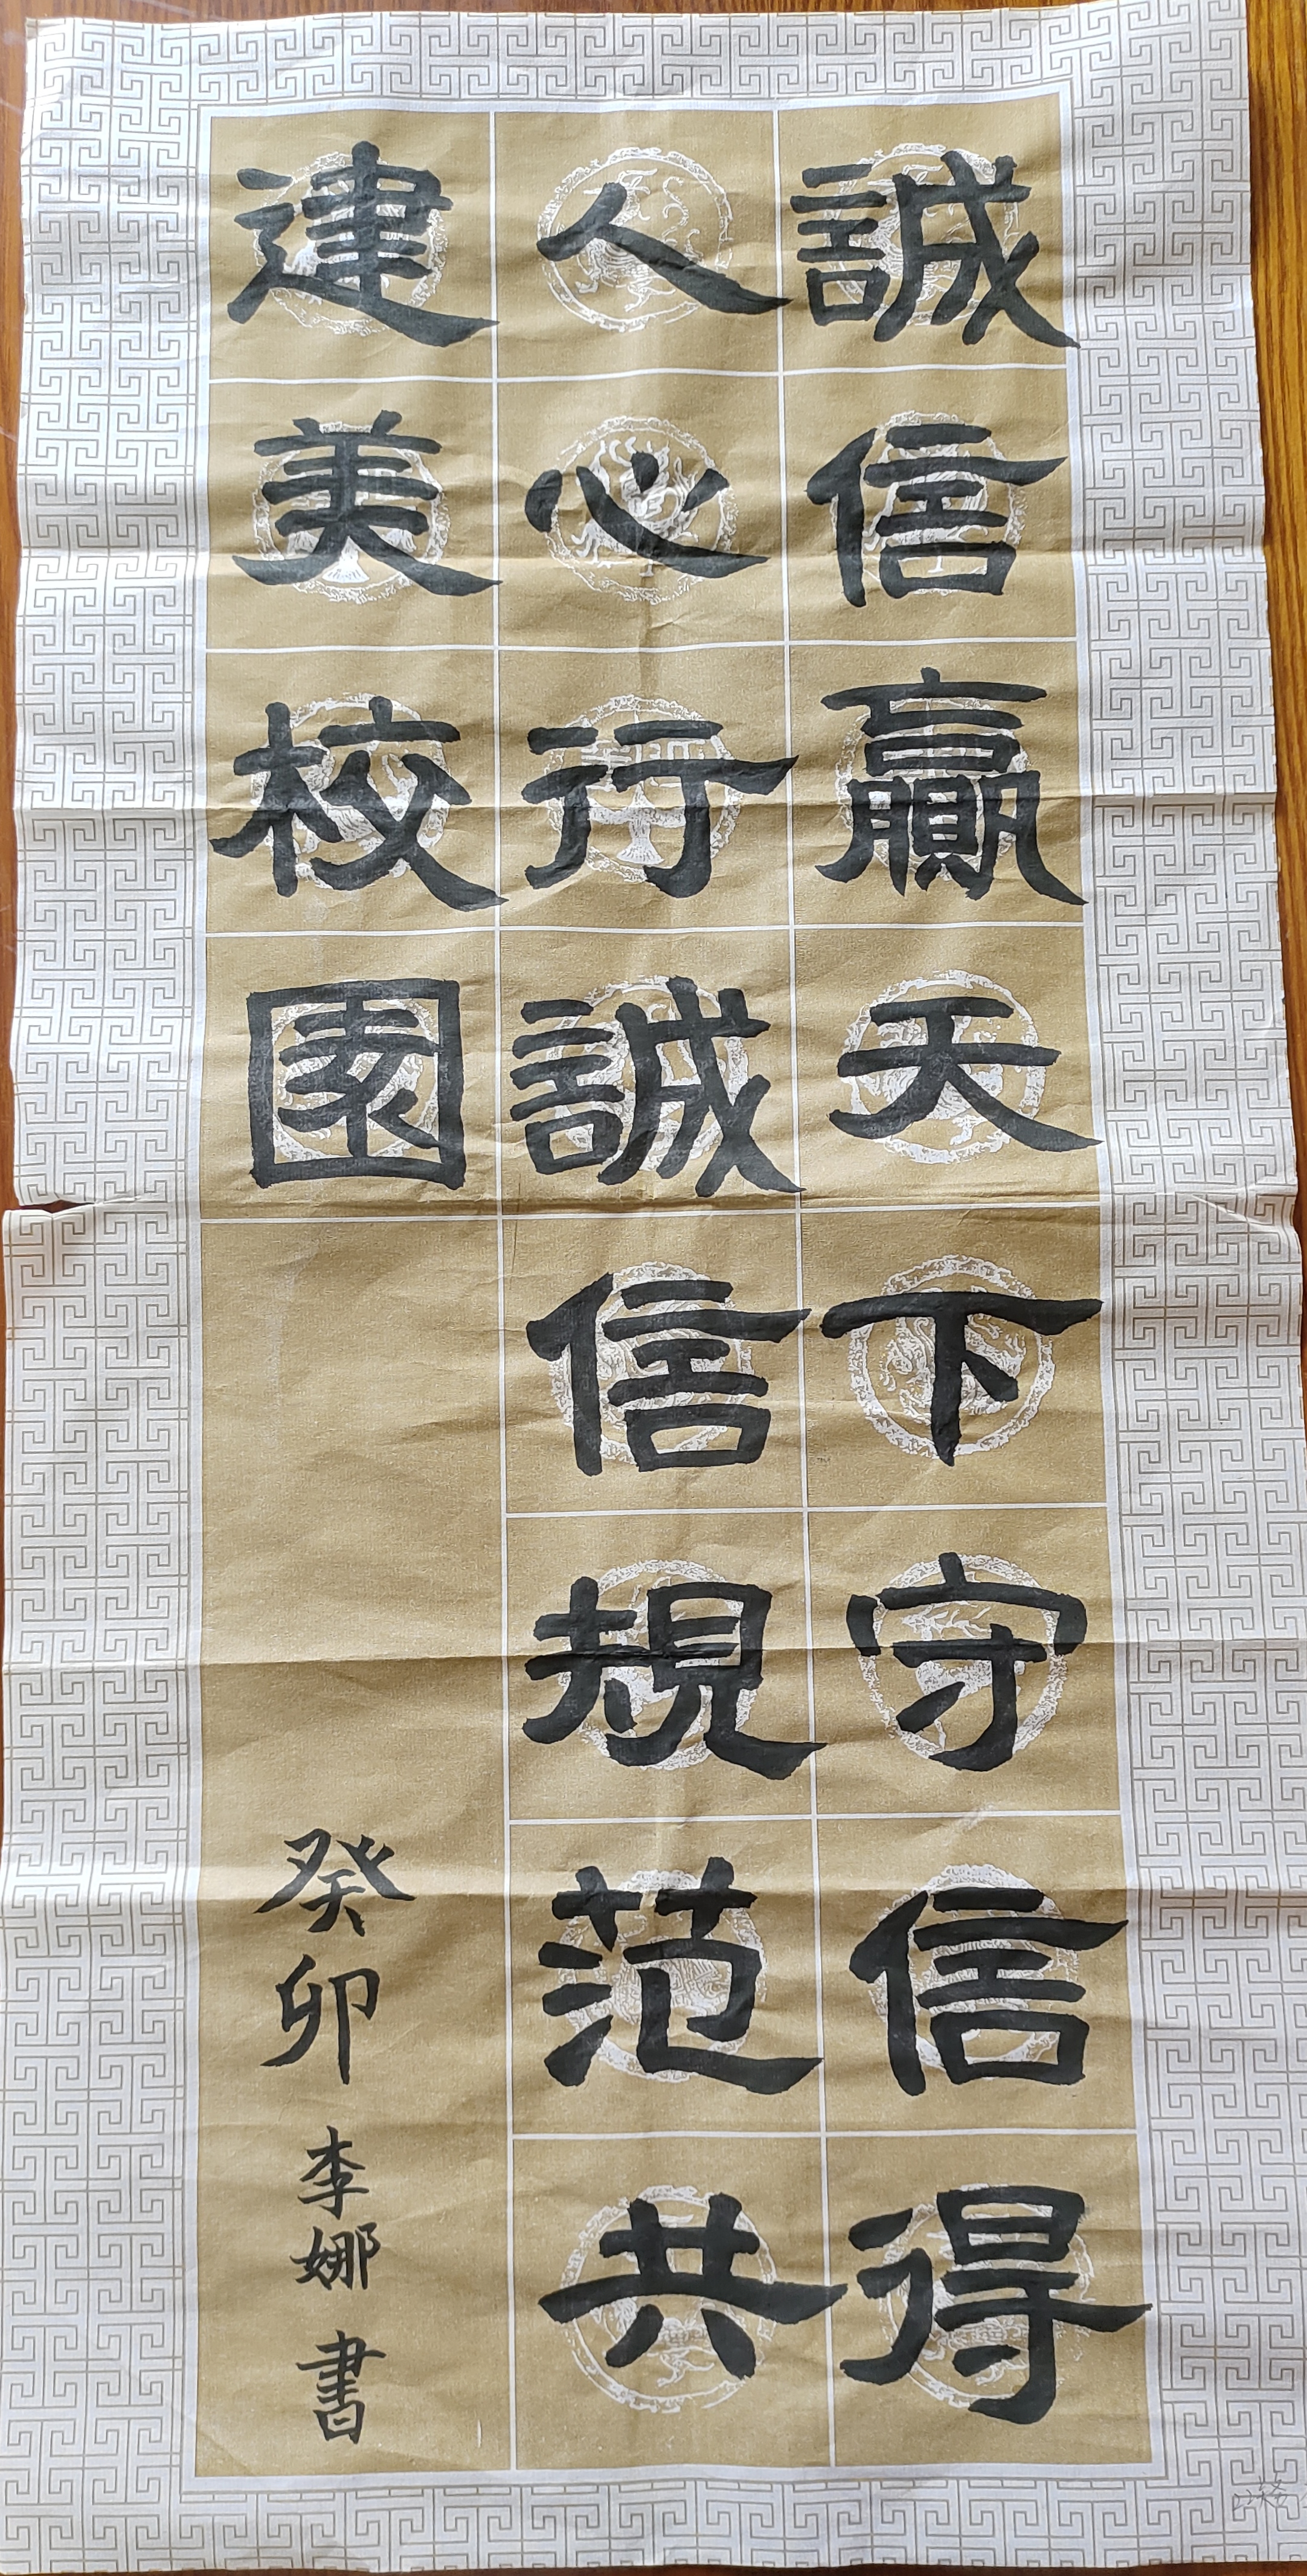 誠信贏天下守信得
人心行誠信規范共
建美校園
癸卯李娜書